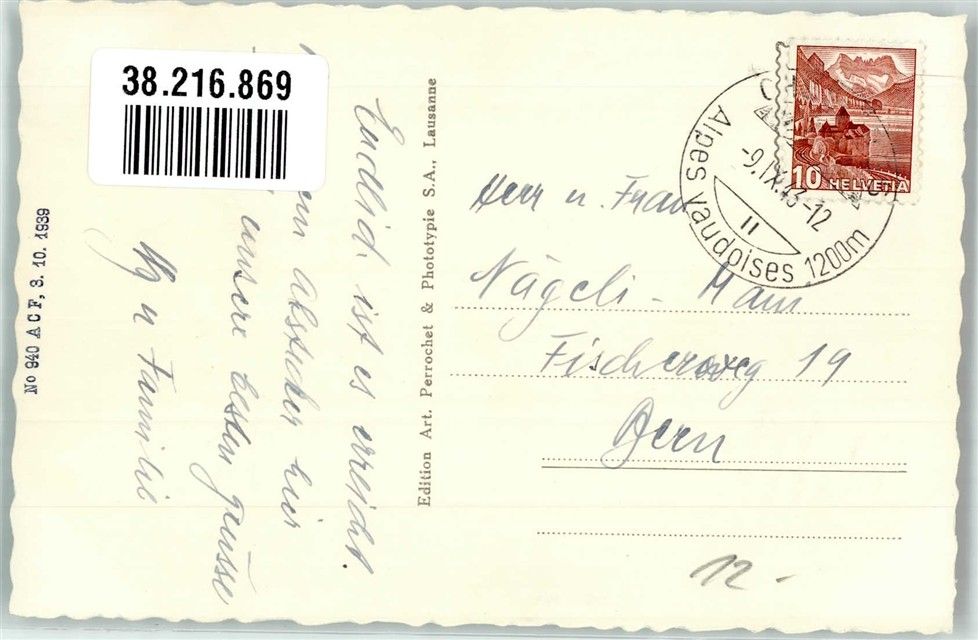 38.216.869
No 940 A C F, 3. 10. 1939
Endlich ist es erreicht.
hier
unsere besten Grüsse
u Familie
Edition Art. Perrochet & Phototypie S.A., Lausanne
Alpes Vaudoises 1200m
-9.IX.43-12
II
10 HELVETIA
Herr u. Frau
Nägeli - Hann
Fischerweg 19
Bern
12.-